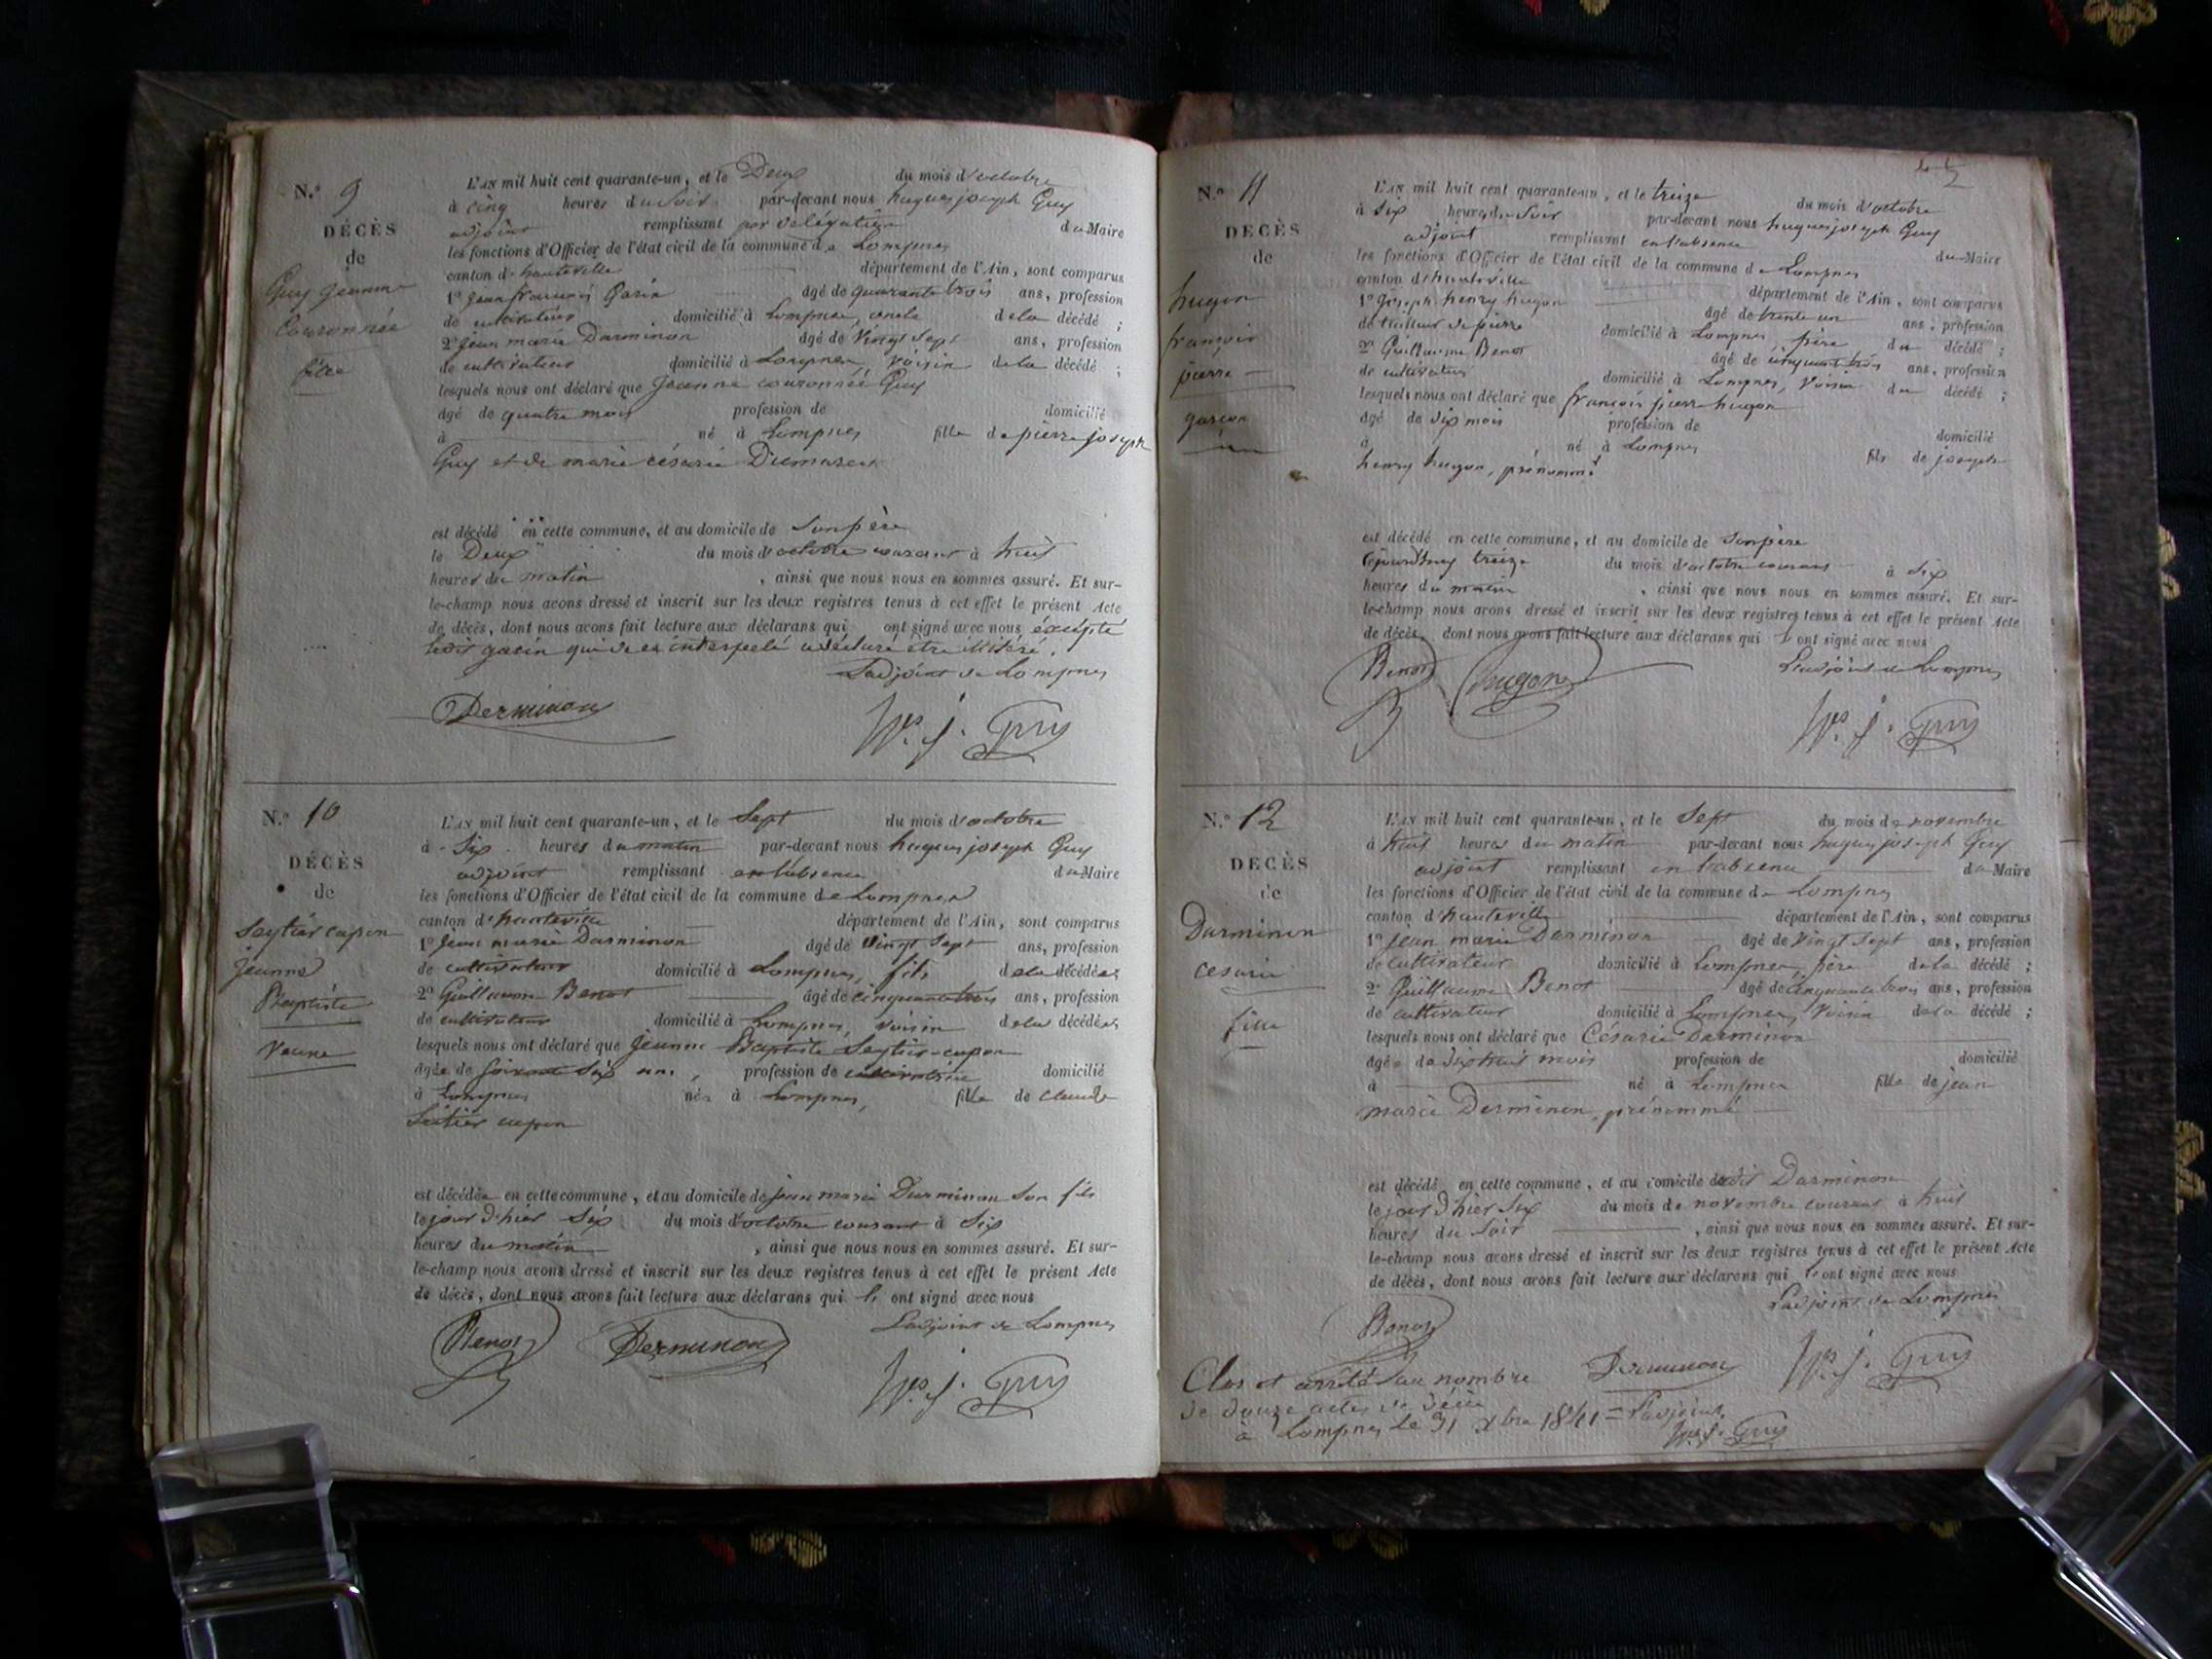 N.° 9
DÉCÈS
de
Guy jeanne
Couronnée
fille
L'AN mil huit cent quarante-un, et le Deux du mois d'octobre
à cinq heures du soir par-devant nous hugues joseph Guy
adjoint remplissant par délégation du Maire
les fonctions d'Officier de l'état civil de la commune de Lompnes
canton d'hauteville département de l'Ain, sont comparus
1° jean françois Garin âgé de quarante trois ans, profession
de cultivateur domicilié à Lompnes, oncle de la décédé ;
2° jean marie Darminon âgé de Vingt Sept ans, profession
de cultivateur domicilié à Lompnes, voisin de la décédé ;
lesquels nous ont déclaré que Jeanne couronnée Guy
âgé de quatre mois profession de domicilié
à né à Lompnes fille de pierre joseph
Guy et de marie césarie Dumarest
est décédé en cette commune, et au domicile de Son père
le Deux du mois d'octobre courant à huit
heures du matin , ainsi que nous nous en sommes assuré. Et sur-
le-champ nous avons dressé et inscrit sur les deux registres tenus à cet effet le présent Acte
de décès, dont nous avons fait lecture aux déclarans qui ont signé avec nous éxcépté
ledit garin qui de ce interpelé a déclaré être illitéré.
L'adjoint de Lompnes
Derminon
Hgs. j. Guy
N.° 10
DÉCÈS
de
Seytier cupon
jeanne
Baptiste
Veuve
L'AN mil huit cent quarante-un, et le Sept du mois d'octobre
à Six heures du matin par-devant nous hugues joseph Guy
adjoint remplissant en l'absence du Maire
les fonctions d'Officier de l'état civil de la commune de Lompnes
canton d'hauteville département de l'Ain, sont comparus
1° jean marie Darminon âgé de Vingt Sept ans, profession
de cultivateur domicilié à Lompnes, fils de la décédée;
2° Guillaume Benot âgé de cinquante trois ans, profession
de cultivateur domicilié à Lompnes, voisin de la décédée;
lesquels nous ont déclaré que jeanne Baptiste Seytier-cupon
âgée de Soixante Six ans, profession de cultivatrice domicilié
à Lompnes née à Lompnes, fille de claude
Seitier cupon
est décédée en cette commune, et au domicile de jean marie Darminon Son fils
le jour d'hier Six du mois d'octobre courant à Six
heures du matin , ainsi que nous nous en sommes assuré. Et sur-
le-champ nous avons dressé et inscrit sur les deux registres tenus à cet effet le présent Acte
de décès, dont nous avons fait lecture aux déclarans qui l'ont signé avec nous
L'adjoint de Lompnes
Benot Derminon
Hgs. j. Guy
N.° 11
DÉCÈS
de
hugon
françois
pierre
garçon
L'AN mil huit cent quarante-un, et le treize du mois d'octobre
à Six heures du Soir par-devant nous hugues joseph Guy
adjoint remplissant en l'absence du Maire
les fonctions d'Officier de l'état civil de la commune de Lompnes
canton d'hauteville département de l'Ain, sont comparus
1° joseph henry hugon âgé de trente un ans, profession
de tailleur de pierre domicilié à Lompnes, père du décédé ;
2° Guillaume Benot âgé de cinquante trois ans, profession
de cultivateur domicilié à Lompnes, Voisin du décédé ;
lesquels nous ont déclaré que françois pierre hugon
âgé de Six mois profession de domicilié
à né à Lompnes fils de joseph
henry hugon, prénommé
est décédé en cette commune, et au domicile de Son père
aujourd'huy treize du mois d'octobre courant à Six
heures du matin , ainsi que nous nous en sommes assuré. Et sur-
le-champ nous avons dressé et inscrit sur les deux registres tenus à cet effet le présent Acte
de décès, dont nous avons fait lecture aux déclarans qui l'ont signé avec nous
L'adjoint de Lompnes
Benot hugon
Hgs. j. Guy
N.° 12
DÉCÈS
de
Darminon
césarie
fille
L'AN mil huit cent quarante-un, et le Sept du mois de novembre
à huit heures du matin par-devant nous hugues joseph Guy
adjoint remplissant en l'absence du Maire
les fonctions d'Officier de l'état civil de la commune de Lompnes
canton d'hauteville département de l'Ain, sont comparus
1° jean marie Darminon âgé de Vingt Sept ans, profession
de cultivateur domicilié à Lompnes, père de la décédé ;
2° Guillaume Benot âgé de cinquante trois ans, profession
de cultivateur domicilié à Lompnes, Voisin de la décédé ;
lesquels nous ont déclaré que Césarie Darminon
âgée de dix huit mois profession de domicilié
à né à Lompnes fille de jean
marie Derminon, prénommé
est décédé en cette commune, et au domicile dudit Darminon
le jour d'hier Six du mois de novembre courant à huit
heures du Soir , ainsi que nous nous en sommes assuré. Et sur-
le-champ nous avons dressé et inscrit sur les deux registres tenus à cet effet le présent Acte
de décès, dont nous avons fait lecture aux déclarans qui l'ont signé avec nous
L'adjoint de Lompnes
Benot
Derminon Hgs. j. Guy
Clos et arrêté au nombre
de douze actes de décès
à Lompnes le 31 Xbre 1841 = L'adjoint,
Hgs. j. Guy